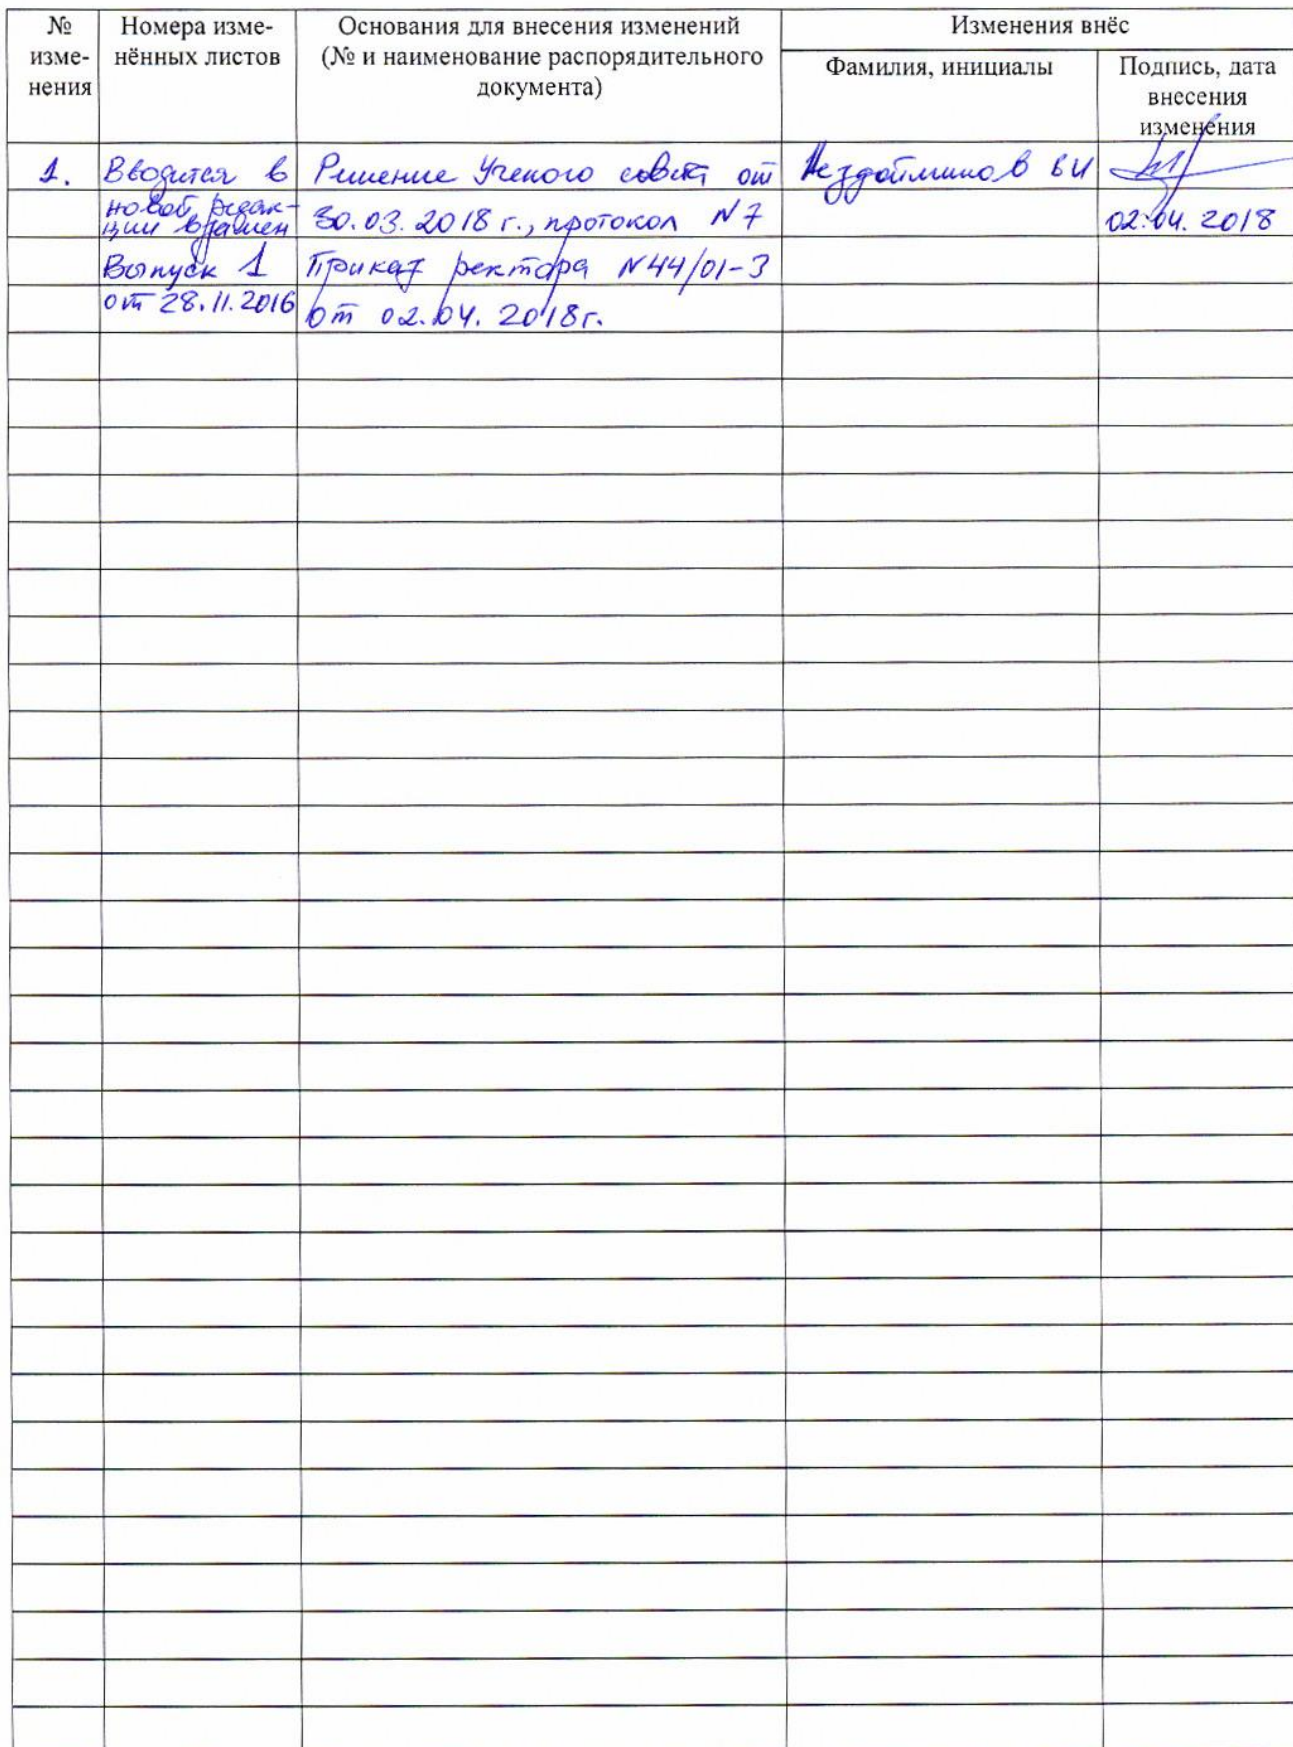 № изме-
нения
Номера изме-
нённых листов
Основания для внесения изменений
(№ и наименование распорядительного
документа)
Изменения внёс
Фамилия, инициалы
Подпись, дата
внесения
изменения
1.
Вводится в
новой редак-
ции взамен
Выпуск 1
от 28.11.2016
Решение Ученого совета от
30.03.2018 г., протокол N 7
Приказ ректора N44/01-3
от 02.04.2018г.
Нездойминов ВИ
02.04.2018